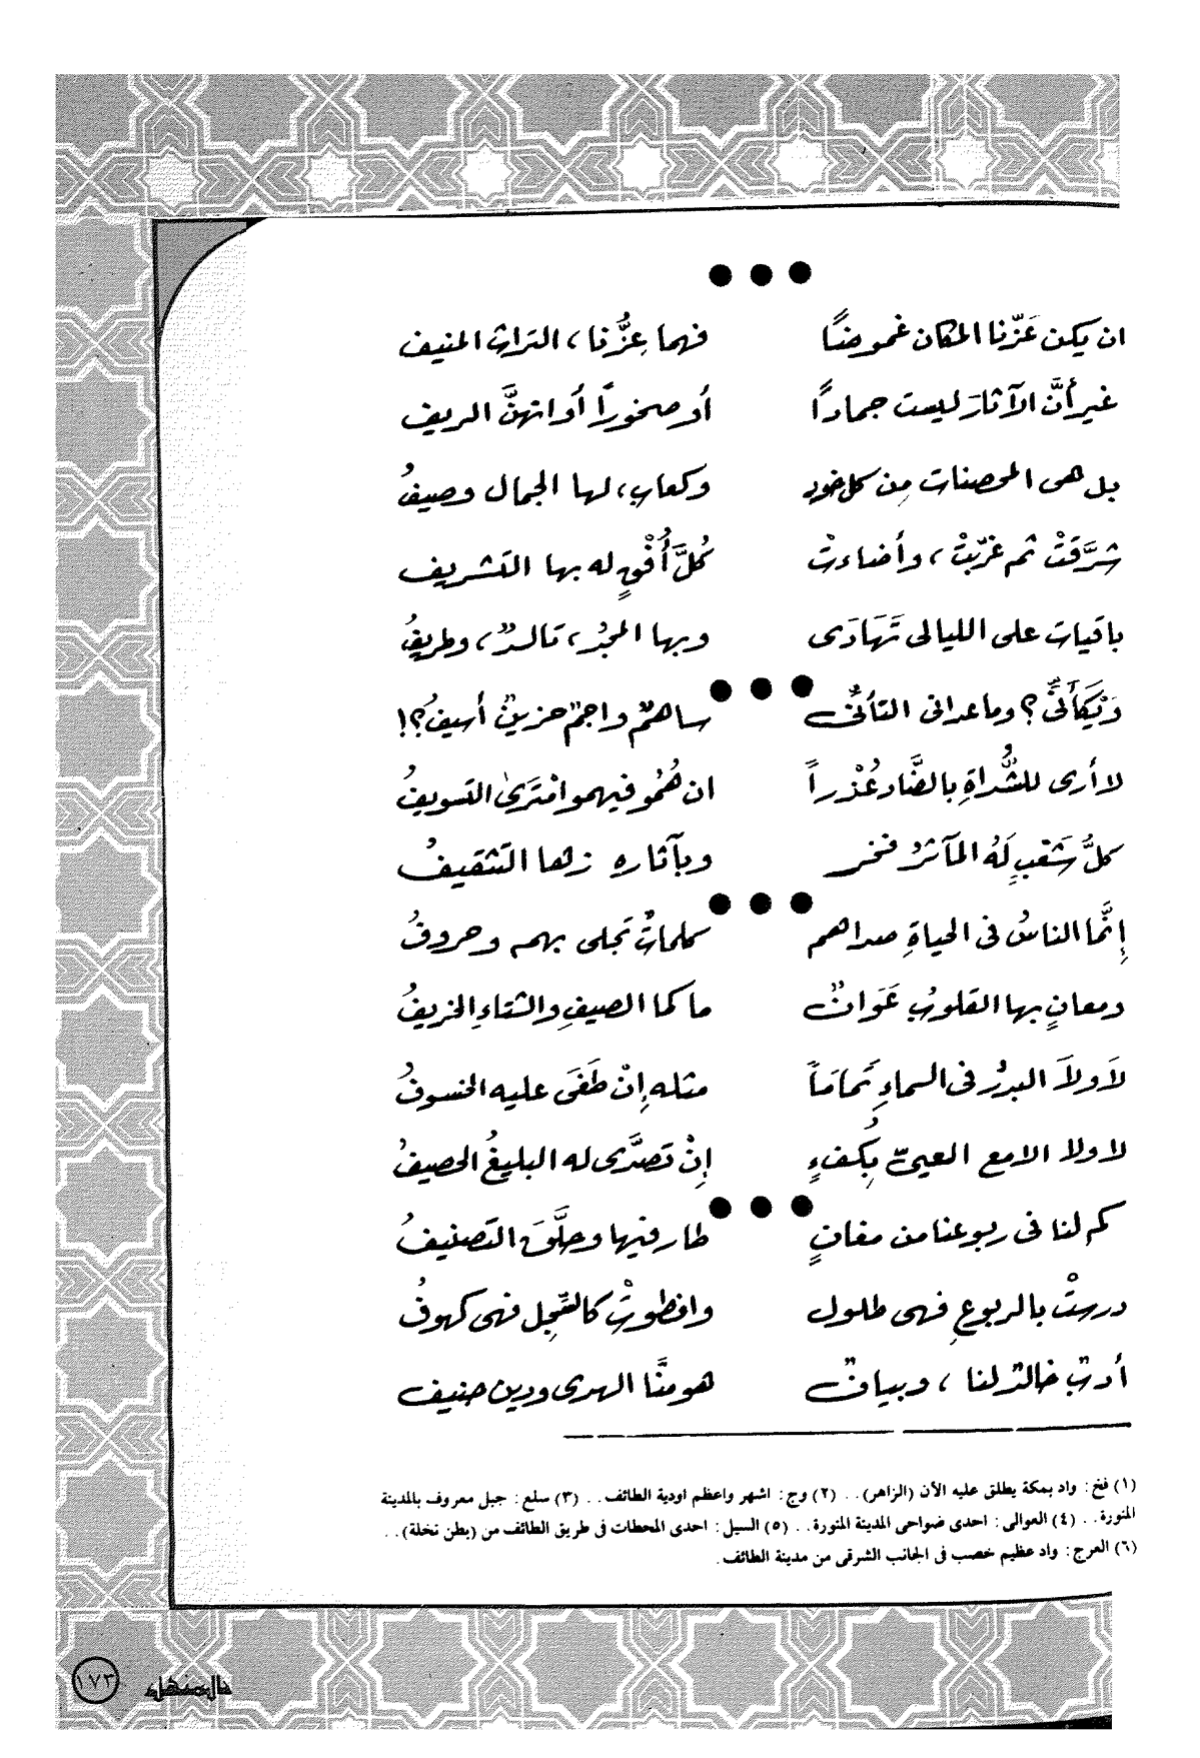 ان يكن عَزّنا المكان غموضًا فهما عِزُّنا، التراث المنيف
غير أنَّ الآثارَ ليست جمادًا أو صخورًا أو انهنَّ الريف
بل هى المحصنات مِن كل خود وكعابٍ، لها الجمال وصيفُ
شرَّقتْ ثم غرّبتْ، وأضاءتْ كُلَّ أُفْقٍ له بها التشريف
باقيات على الليالى تَهَادَى وبها المجدُ، تالدٌ، وطريفُ
وَيْكَأَنِّى؟ وما عدانى التأنّى ساهمٌ واجمٌ حزينٌ أسيفُ؟!
لا أرى للشُّداةِ بالضَّاد عُذْراً ان هُمُو فيهمو امْتَرَى التسويفُ
كلُّ شَعْبٍ لَهُ المآثرُ فخر وبآثاره زها التثقيفُ
إنَّما الناسُ فى الحياةِ صداهم كلماتٌ تجلى بهم وحروفُ
ومعانٍ بها القلوبُ عَوَانٌ ما كما الصيفِ والشتاءِ الخريفُ
لاَ ولاَ البدرُ فى السماءِ تَمامَاً مثله إنْ طَغَى عليه الخسوفُ
لا ولا الامع العيىّ بِكُفءٍ إنْ تصدَّى له البليغُ الحصيفُ
كم لنا فى ربوعنا من مغانٍ طار فيها وحلَّقَ التصنيفُ
درستْ بالربوعِ فهى طلول وانطوتْ كالسِّجِل فهى كهوفُ
أدبٌ خالدٌ لنا، وبيانٌ هو منَّا الهدى ودين حنيف
(١) فخ: واد بمكة يطلق عليه الأن (الزاهر).. (٢) وج: اشهر واعظم اودية الطائف.. (٣) سلع: جبل معروف بالمدينة
المنورة.. (٤) العوالى: احدى ضواحى المدينة المنورة.. (٥) السيل: احدى المحطات فى طريق الطائف من (بطن نخلة)..
(٦) العرج: واد عظيم خصب فى الجانب الشرقى من مدينة الطائف.
المنهل ١٧٣